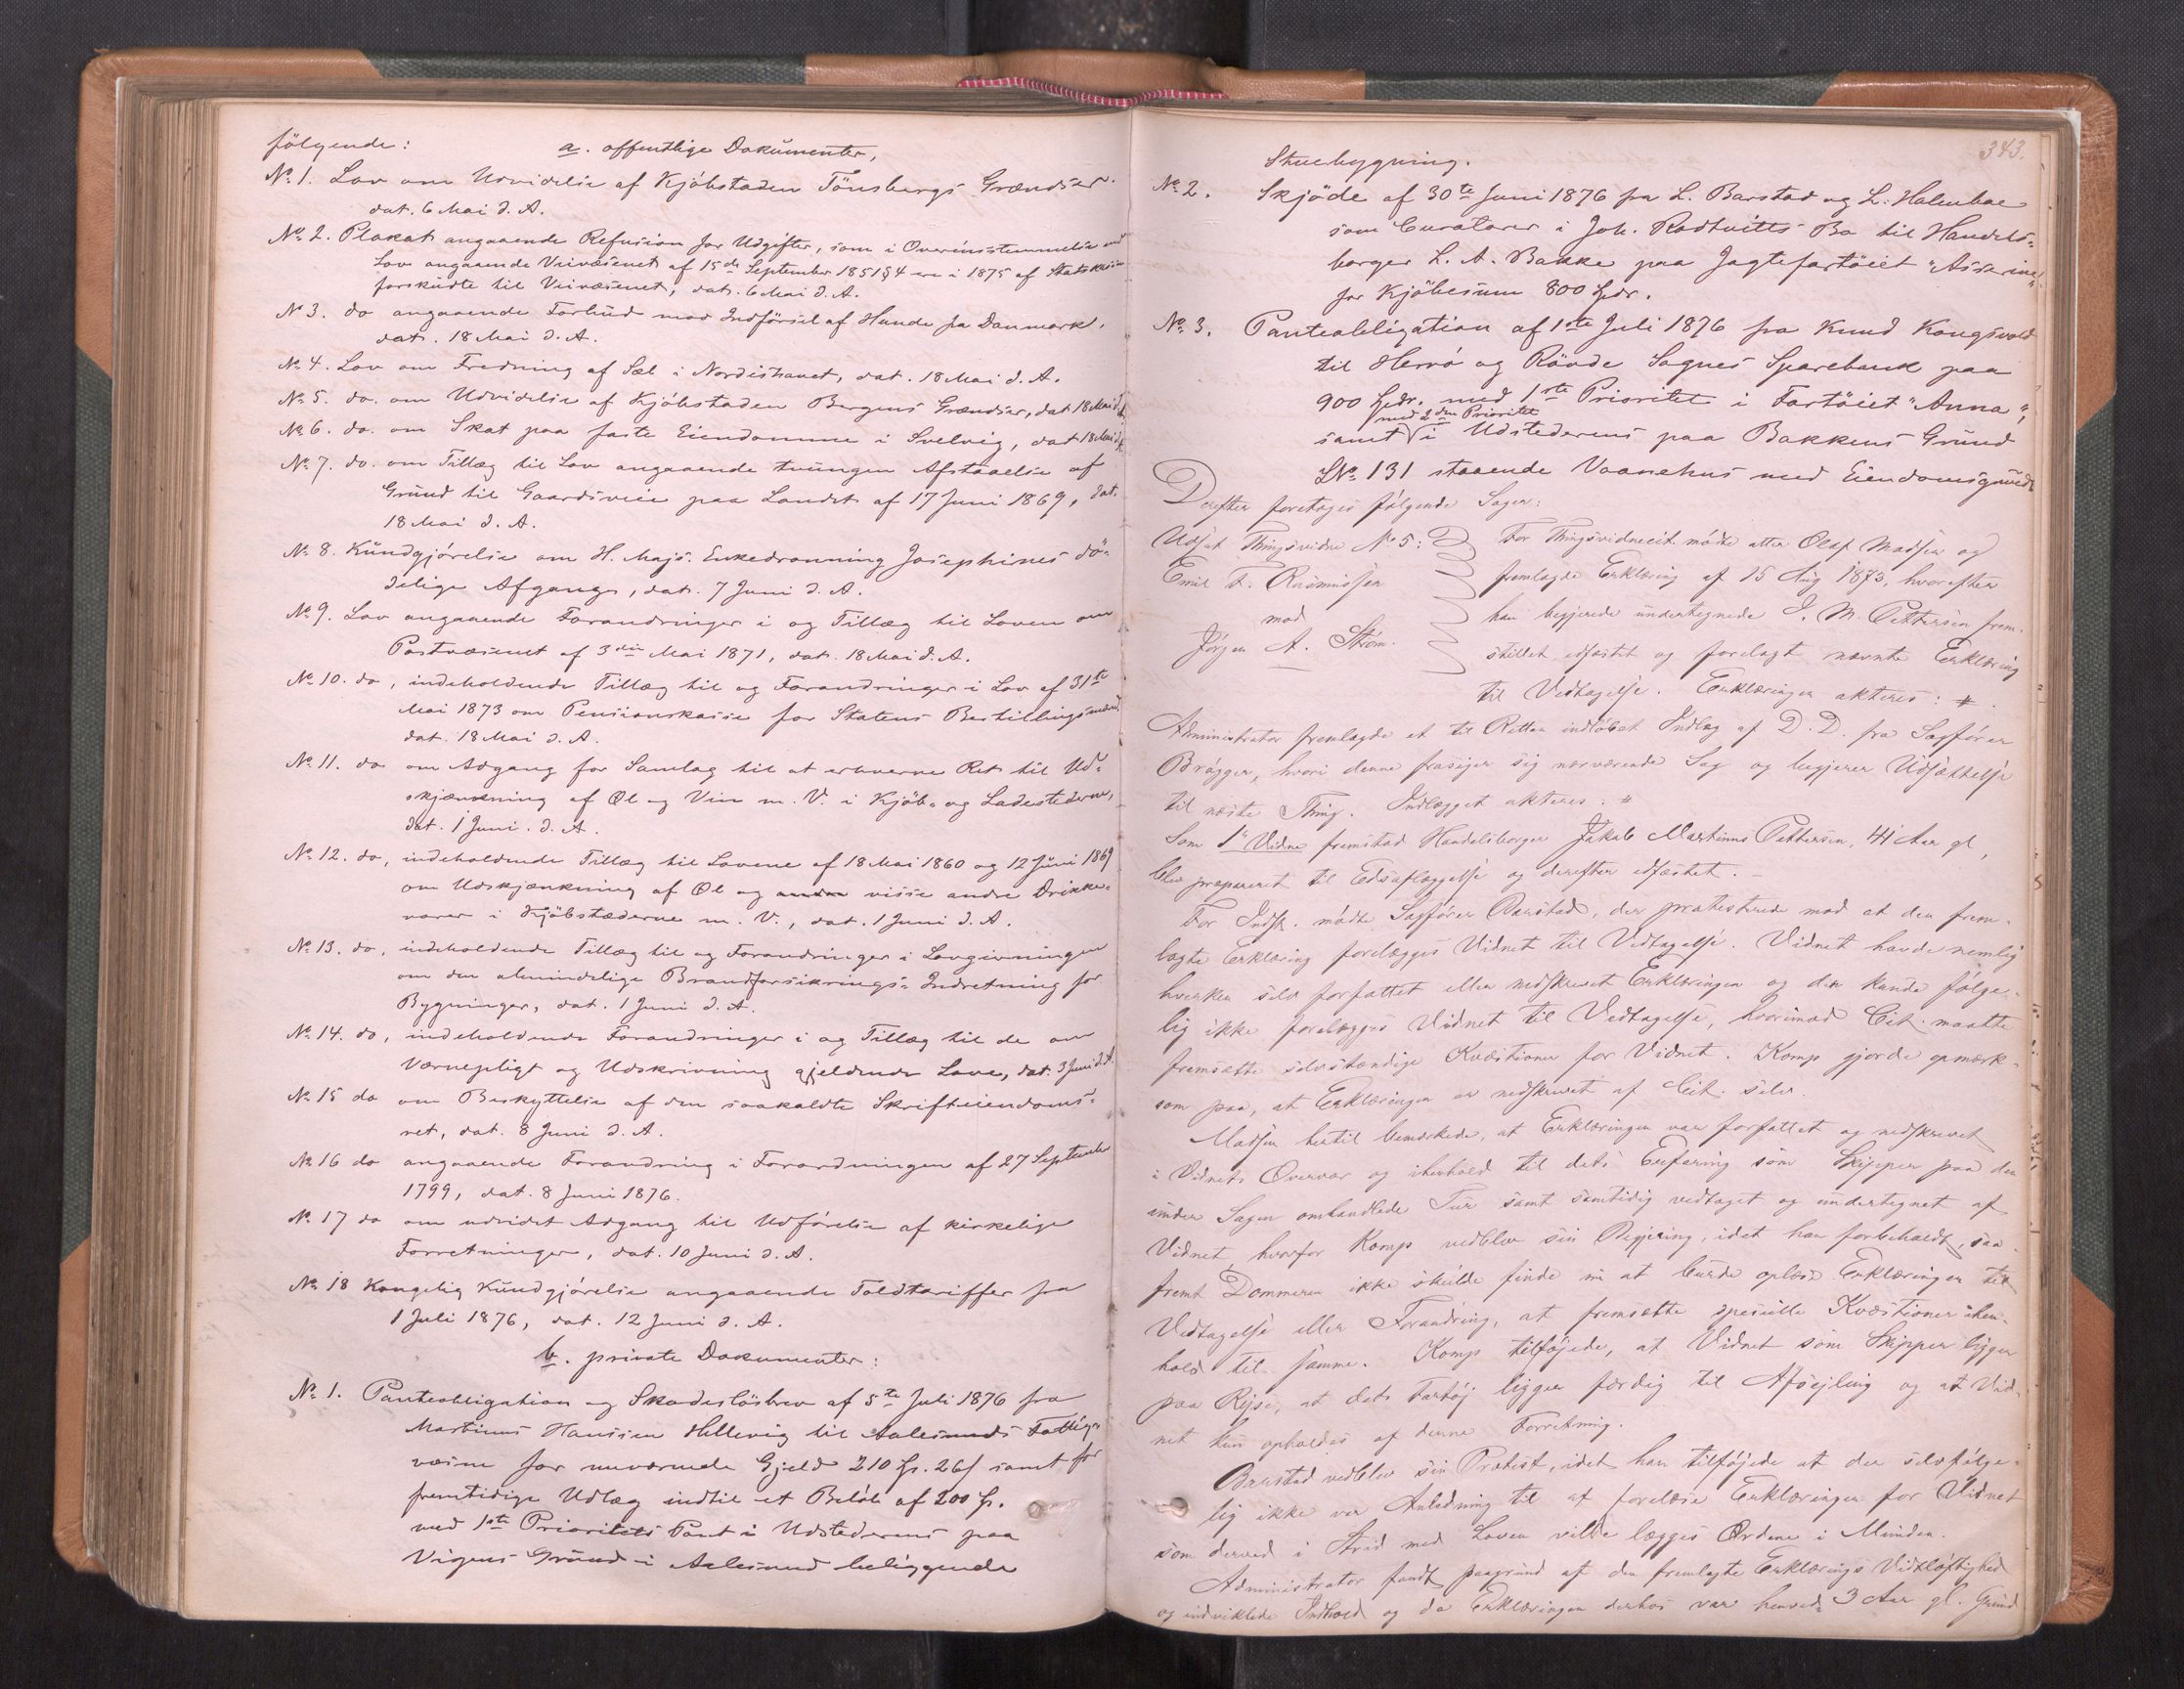 følgende:
a. offentlige Dokumenter,
No. 1. Lov om Udvidelse af Kjøbstaden Tönsbergs Grændser.
dat. 6 Mai d. A.
No. 2. Plakat angaaende Refusion for Udgifter, som i Overinsstemmelse med
Lov angaaende Veivæsenet af 15de September 1851 § 4 ere i 1875 af Statskassen
forskudte til Veivæsenet, dat. 6 Mai d. A.
No 3. do angaaende Forbud mod Indførsel af Hunde fra Danmark,
dat. 18 Mai d. A.
No. 4. Lov om Fredning af Sæl i Nordishavet, dat. 18 Mai d. A.
No. 5. do. om Udvidelse af Kjøbstaden Bergens Grændser, dat 18 Mai d. A.
No. 6. do. om Skat paa faste Eiendomme i Svelvig, dat 18 Mai d. A.
No. 7. do. om Tillæg til Lov angaaende tvungen Afstaaelse af
Grund til Gaardsveie paa Landet af 17 Juni 1869, dat.
18 Mai d. A.
No. 8. Kundgjørelse om H. Majs. Enkedronning Josephines dö-
delige Afgang, dat. 7 Juni d. A.
No. 9. Lov angaaende Forandringer i og Tillæg til Loven om
Postvæsenet af 3die Mai 1871, dat. 18 Mai d. A.
No. 10. do, indeholdende Tillæg til og Forandringer i Lov af 31te
Mai 1873 om Pensionskasse for Statens Bestillingsmænd
dat. 18 Mai d. A.
No. 11. do om Adgang for Samlag til at erhverve Ret til Ud-
skjænkning af Øl og Vin m. V. i Kjöb- og Ladestederne,
dat. 1 Juni. d. A.
No. 12. do, indeholdende Tillæg til Lovene af 18 Mai 1860 og 12 Juni 1869
om Udskjænkning af Øl og andre visse andre Drikke-
varer i Kjöbstæderne m. V., dat. 1 Juni d. A.
No. 13. do, indeholdende Tillæg til og Forandringer i Lovgivningen
om den almindelige Brandforsikrings-Indretning for
Bygninger, dat. 1 Juni d. A.
No. 14. do, indeholdende Forandringer i og Tillæg til de om
Værnepligt og Udskrivning gjeldende Love, dat. 3 Juni d. A.
No. 15 do om Beskyttelse af den saakaldte Skrifteiendoms-
ret, dat. 8 Juni d. A.
No 16 do angaaende Forandring i Forordningen af 27 September
1799, dat. 8 Juni 1876.
No. 17 do om udvidet Adgang til Udførelse af kirkelige
Forretninger, dat. 10 Juni d. A.
No. 18 Kongelig Kundgjørelse angaaende Toldtariffer fra
1 Juli 1876, dat. 12 Juni d. A.
b. private Dokumenter:
No. 1. Panteobligation og Skadeslösbrev af 5te Juli 1876 fra
Martinus Hanssen Hellevig til Aalesunds Fattig-
væsen for nuværende Gjeld 210 Kr. 26 samt for
fremtidige Udlæg indtil et Beløb af 200 Kr.
med 1ste Prioritets Pant i Udstederens paa
Vigens Grund i Aalesund beliggende
343.
Stuebygning.
No. 2. Skjöde af 30te Juni 1876 fra L. Barstad og L. Holenbae
som Curatorer i Joh. Rödtvitts Bo til Handels-
borger L. A. Bakke paa Jagtefartöiet "Asserine"
for Kjöbesum 800 Spdr.
No. 3. Panteobligation af 1ste Juli 1876 fra Knud Kongsvold
til Herrö og Rövde Sognes Sparebank paa
900 Spdr. med 1ste Prioritet i Fartöiet "Anna",
med 2den Prioritet
samt i Udstederens paa Bakkens Grund
LNo. 131 staaende Vaanehus med Eiendomsgrund
Derefter foretoges følgende Sager:
Udsat Thingsvidne No 5:
Emil F. Rasmussen
mod
Jørgen A. Strøm.
For Thingsvidneeit. mødte atter Olaf Madsen og
fremlagde Erklæring af 15 Aug 1873, hvorefter
han begjerede undertegnede J. M. Pettersen frem-
stillet edfæstet og forelagt nævnte Erklæring
til Vedtagelse. Erklæringen akteres: #.
Administrator fremlagde et til Retten indløbet Indlæg af D. D. fra Sagfører
Brøgger, hvori denne frasiger sig nærværende Sag og begjerer Udsættelse
til næste Thing. Indlægget akteres: #
Som 1ste Vidne fremstod Handelsborger Jakob Martinus Pettersen, 41 Aar gl,
blev præpareret til Edsaflæggelse og derefter edfæstet. –
For Indst. mødte Sagfører Barstad, der protesterede mod at den frem-
lagte Erklæring forelægges Vidnet til Vedtagelse. Vidnet havde nemlig
hverken selv forfattet eller nedskrevet Erklæringen og den kunde følge-
lig ikke forelægges Vidnet til Vedtagelse, hvorimod Cit. maatte
fremsætte selvstændige Kvæstioner for Vidnet. Komp gjorde opmærk-
som paa, at Erklæringen er nedskrevet af Cit. selv.
Madsen hertil bemærkede, at Erklæringen var forfattet og nedskrevet
i Vidnets Overvær og ihenhold til dets Erfaring som Skipper paa den
under Sagen omhandlede Tur samt samtidig vedtaget og undertegnet af
Vidnet, hvorfor Komp vedblev sin Begjering, idet han forbeholdt, saa-
fremt Dommeren ikke skulde finde sig at burde oplæse Erklæringen til
Vedtagelse eller Forandring, at fremsætte specielle Kvæstioner ihen-
hold til samme. Komp tilføjede, at Vidnet som Skipper ligger
paa Rejse, at dets Fartøj ligger færdig til Afsejling og at Vid-
net kun opholdes af denne Forretning.
Barstad vedblev sin Protest, idet han tilføjede at der selvfølge-
lig ikke var Anledning til at forelæse Erklæringen for Vidnet
som derved i Strid med Loven vilde lægges Ordene i Munden.
Administrator fandt paagrund af den fremlagte Erklærings Vidtløftighed
og indviklede Indhold og da Erklæringen derhos var henved 3 Aar gl. Grund